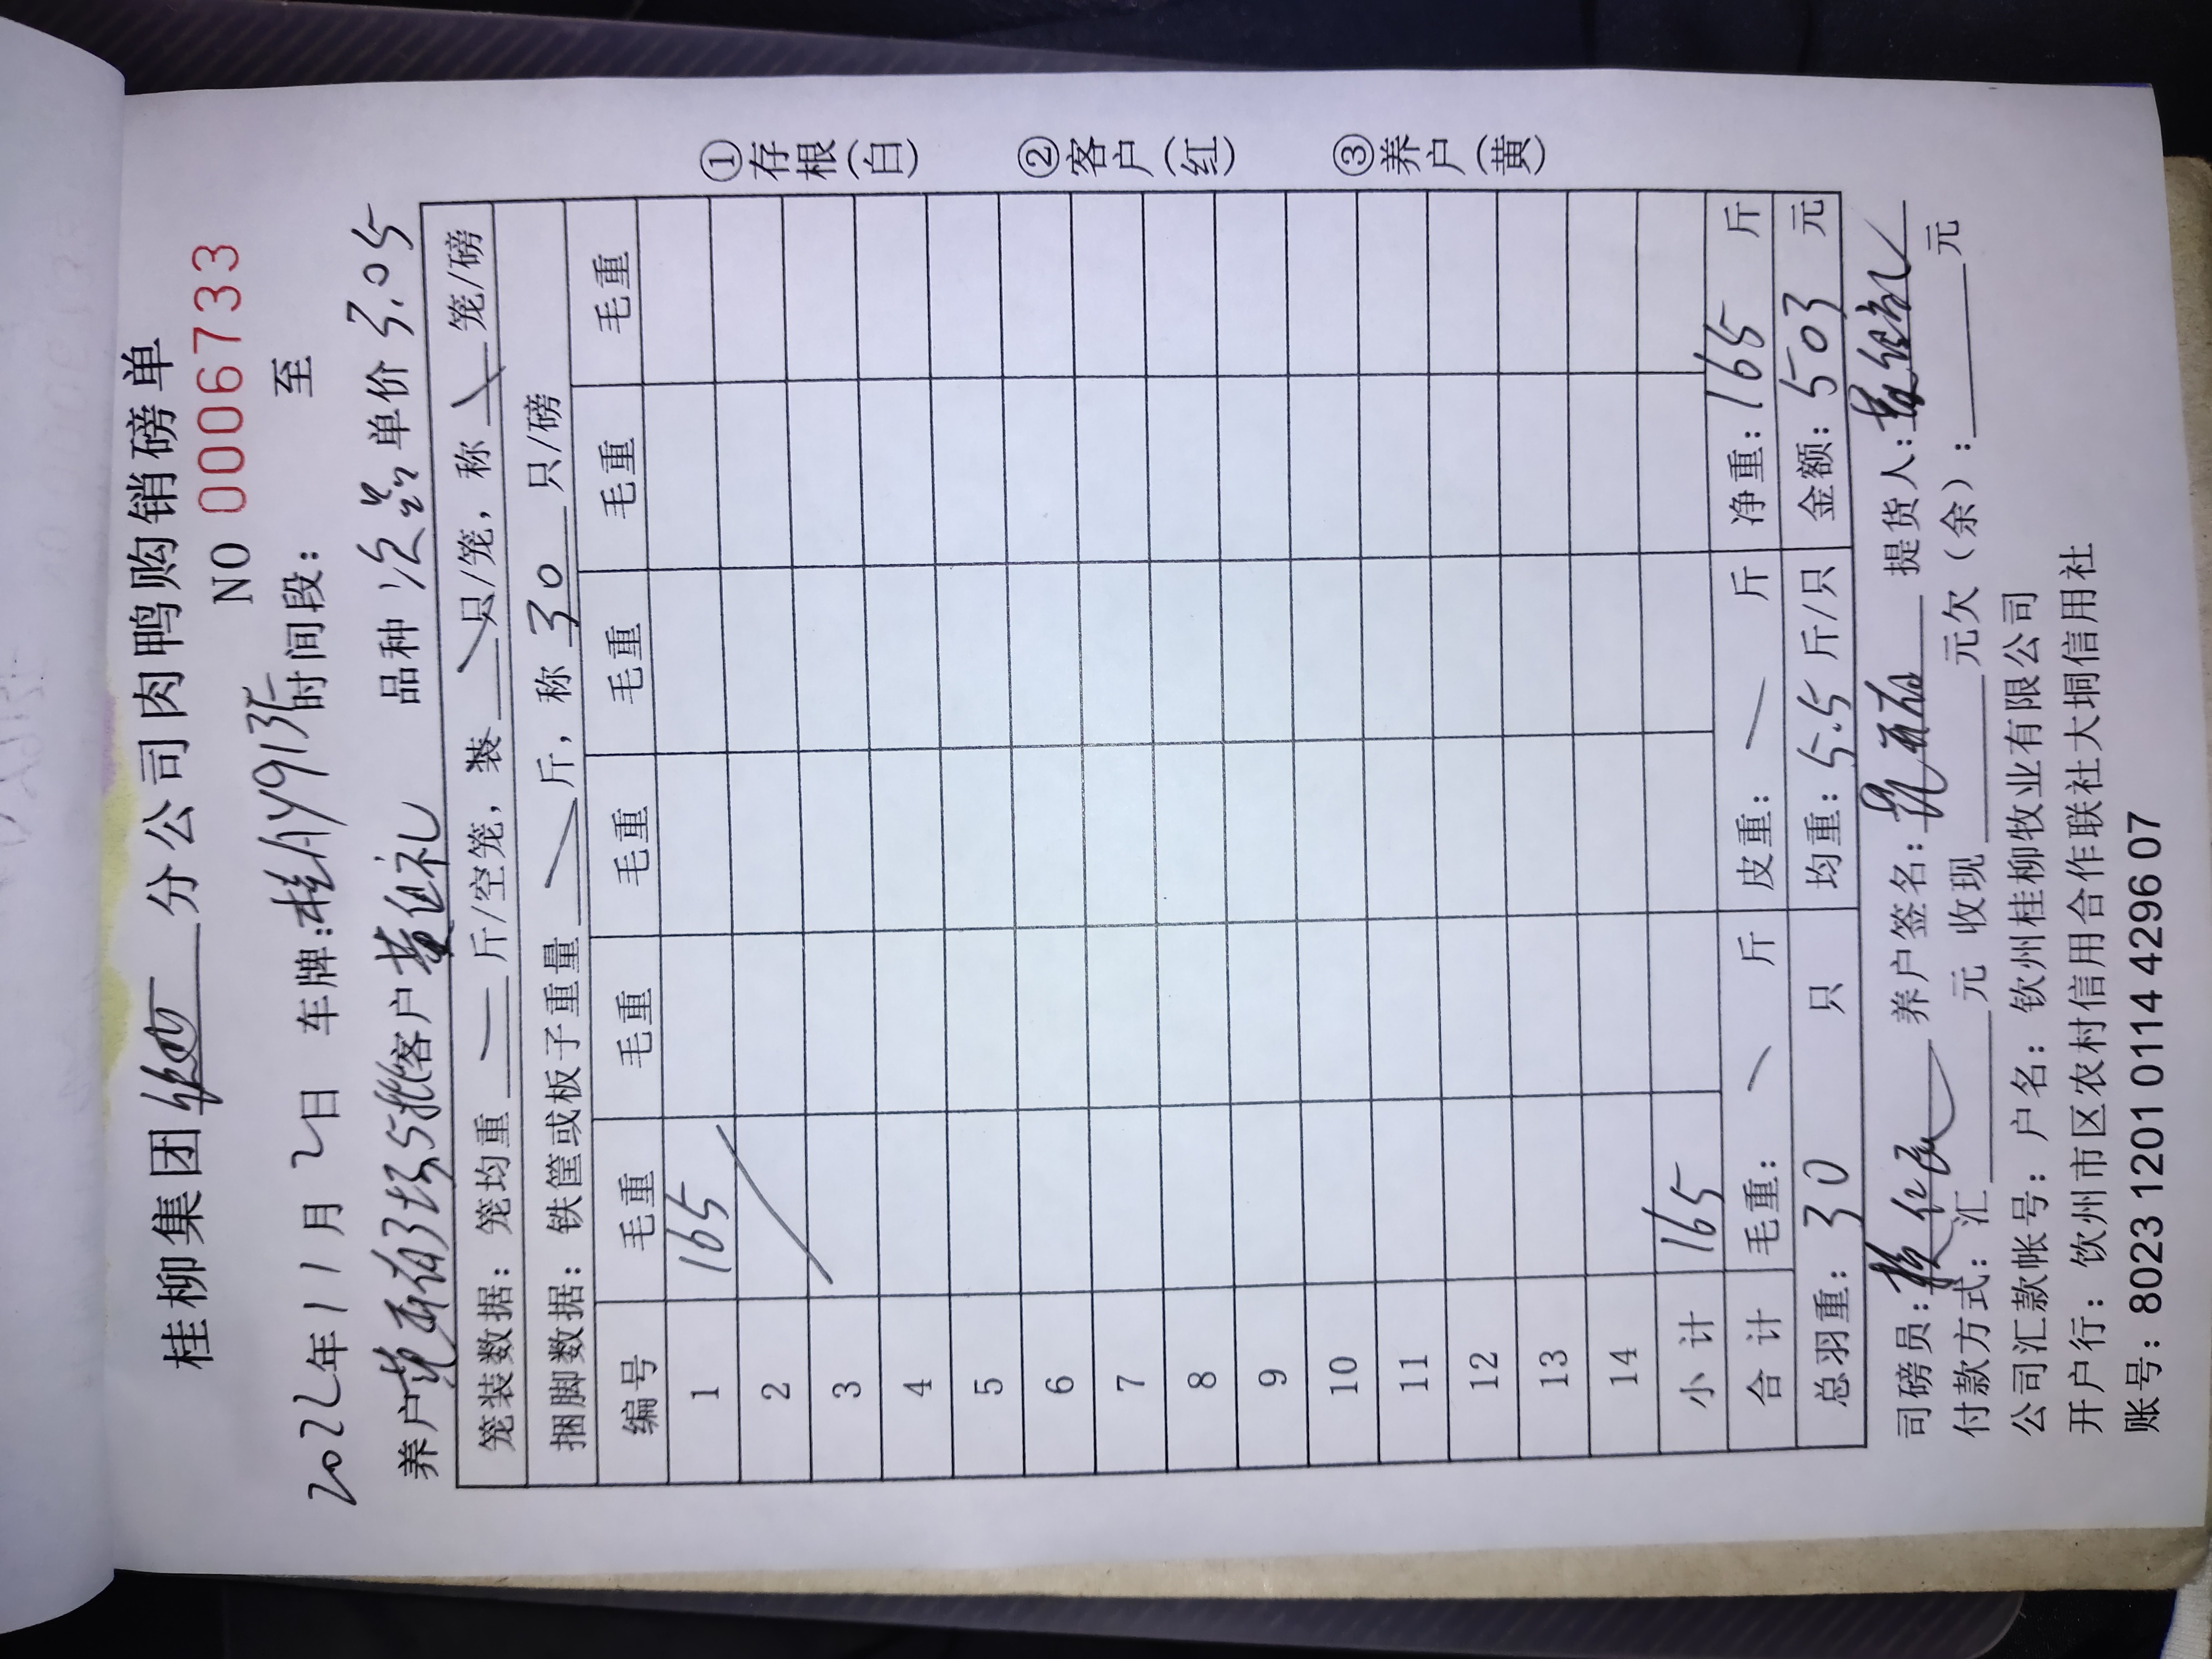 桂柳集团 分公司肉鸭购销磅单
NO 0006733
2022年11月2日 车牌:桂AY913 时间段: 至
养户 5批客户黄 礼 品种 次品 单价 3.05
笼装数据: 笼均重 — 斤/空笼, 装 \ 只/笼, 称 \ 笼/磅
捆脚数据: 铁筐或板子重量 \ 斤, 称 30 只/磅
编号 毛重 毛重 毛重 毛重 毛重 毛重
1 165
2
3
4
5
6
7
8
9
10
11
12
13
14
小计 165
合计 毛重: \ 斤 皮重: — 斤 净重: 165 斤
总羽重: 30 只 均重: 5.5 斤/只 金额: 503 元
司磅员: 养户签名: 提货人:
付款方式: 汇 元 收现 元欠(余): 元
公司汇款帐号: 户名: 钦州桂柳牧业有限公司
开户行: 钦州市区农村信用合作联社大垌信用社
账号: 8023 1201 0114 4296 07
①存根(白)
②客户(红)
③养户(黄)